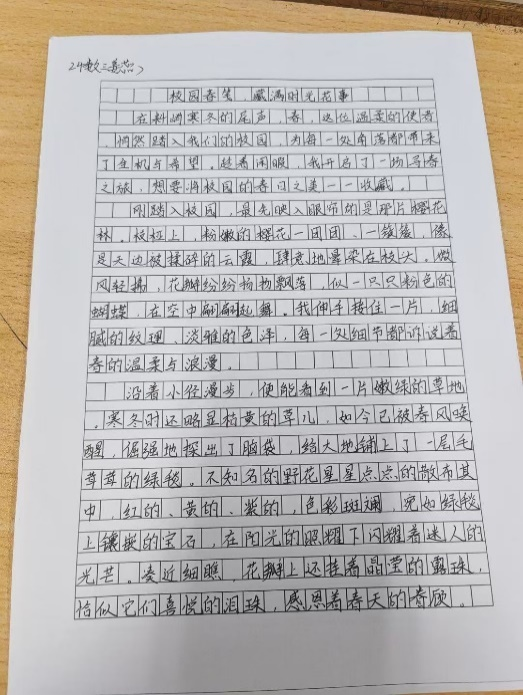 24数三
校园春笔 藏满时光花事
在料峭寒冬的尾声,春,这位温柔的使者
,悄然踏入我们的校园,为每一处角落都带来
了生机与希望。趁着闲暇,我开启了一场寻春
之旅,想要将校园的春日之美一一收藏。
刚踏入校园,最先映入眼帘的是那片樱花
林。枝桠上,粉嫩的樱花一团团、一簇簇,
是天边被揉碎的云霞,肆意地晕染在枝头。微
风轻拂,花瓣纷纷扬扬飘落,似一只只粉色的
蝴蝶,在空中翩翩起舞。我伸手接住一片,细
腻的纹理、淡雅的色泽,每一处细节都诉说着
春的温柔与浪漫。
沿着小径漫步,便能看到一片嫩绿的草地
。寒冬时还略显枯黄的草儿,如今已被春风唤
醒,倔强地探出了脑袋,给大地铺上了一层毛
茸茸的绿毯。不知名的野花星星点点的散布其
中,红的、黄的、紫的,色彩斑斓,宛如绿毯
上镶嵌的宝石,在阳光的照耀下闪耀着迷人的
光芒。凑近细瞧,花瓣上还挂着晶莹的露珠,
恰似它们喜悦的泪珠,感恩着春天的眷顾。